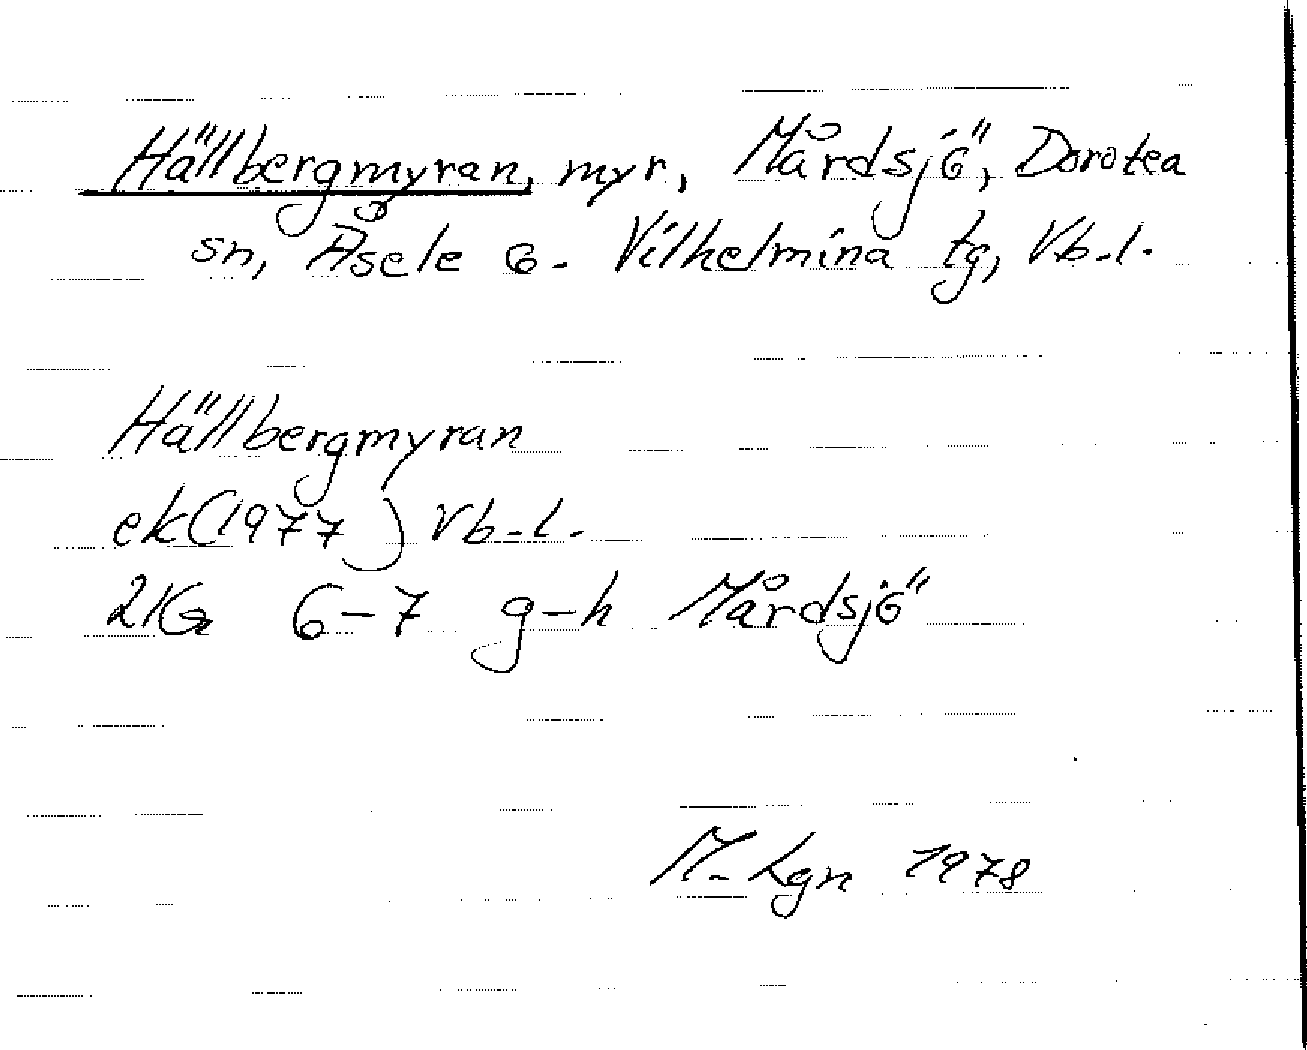 Hällbergmyran, myr, Mårdsjö, Dorotea
sn, Åsele o. Vilhelmina tg, Vb.l.
Hällbergmyran
ek(1977) Vb.l.
2KG 6-7 g-h Mårdsjö
M. Lgn 1978